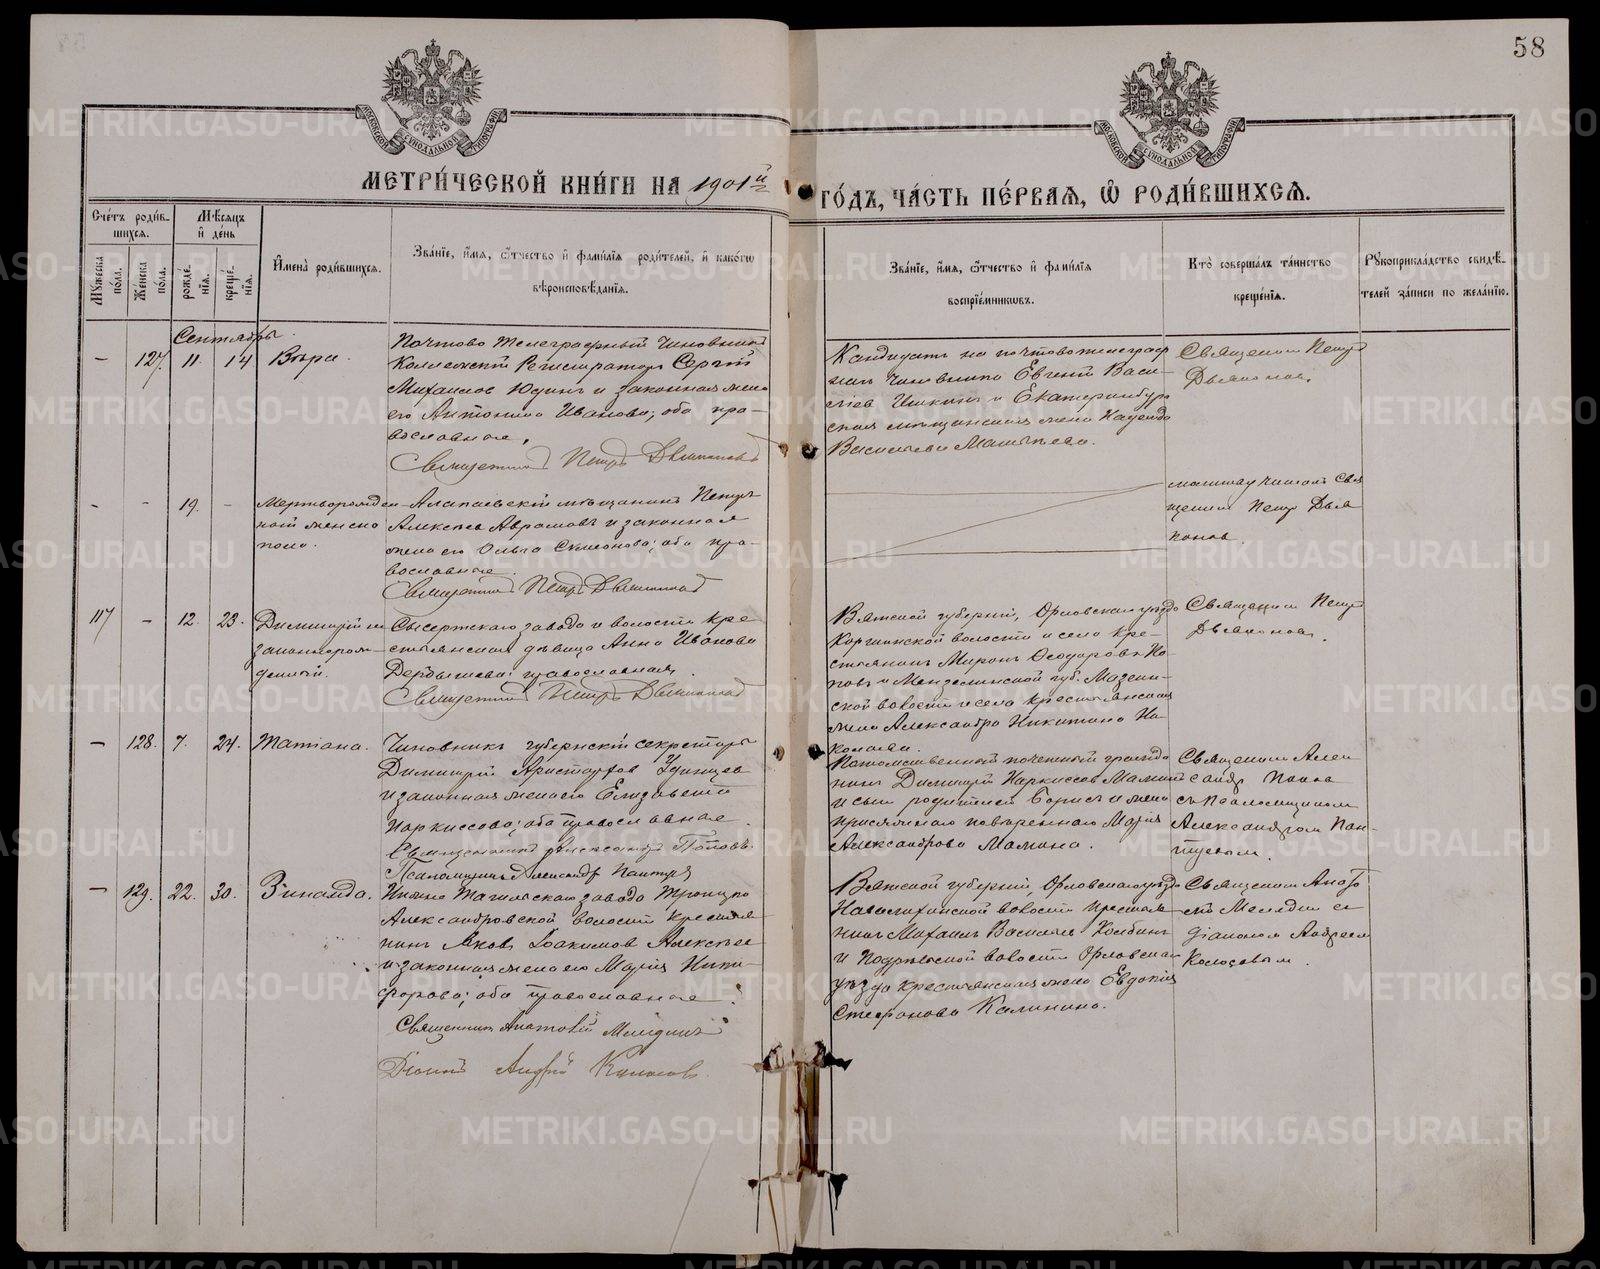 58
МОСКОВСКОЙ СѴНОДАЛЬНОЙ ТИПОГРАФІИ
МОСКОВСКОЙ СѴНОДАЛЬНОЙ ТИПОГРАФІИ
МЕТРИ́ЧЕСКОЙ КНИ́ГИ НА 1901й
ГО́ДЪ, ЧА́СТЬ ПЕ́РВАЯ, Ѡ РОДИ́ВШИХСЯ.
Сче́тъ роди́в-шихся.
Мѣ́сяцъ и де́нь
Мꙋжеска по́ла.
Же́нска по́ла.
рожде́нія.
креще́нія.
Имена̀ роди́вшихся.
Зва́ніе, и́мя, ѻ҆́тчество и фами́лія роди́телей, и како́гѡ
вѣроисповѣ́данія.
Зва́ніе, и́мя, ѻ҆́тчество и фами́лія
воспріе́мникѡвъ.
Кто̀ соверша́лъ та́инство
креще́нія.
Рꙋкоприкла́дство свидѣ́-
телей за́писи по жела́нію.
Сентябрь.
– 127. 11. 14 Вѣра.
Почтово Телеграфный Чиновникъ
Коллежскій Регистраторъ Сергій
Михаиловъ Юдинъ и законная жена
его Антонина Иванова; оба пра-
вославные.
Священникъ Петръ Дьяконовъ
Кандидатъ на почтовотелеграф
ныхъ чиновника Евгеній Васи-
ліев и Екатеринбур
ская мѣщанская жена Надежда
Васильева
Священникъ Петръ
Дьяконовъ.
- - 19. - Мертворожден
ный женска
пола.
Алапаевскій мѣщанинъ Петръ
Алексѣев Аврамовъ и законная
жена его Ольга Симеонова; оба пра-
вославные
Священникъ Петръ Дьяконовъ
молитву читалъ Свя
щенникъ Петръ Дья
коновъ.
117 – 12. 23. Димитрій не
законнорож-
денный.
Сысертскаго завода и волости кре-
стьянская дѣвица Анна Иванова
Дербышева; православная.
Священникъ Петръ Дьяконовъ
Вятской губерніи, Орловскаго уѣзда
волости и села кре-
стьянинъ Миронъ Ѳеодоровъ По-
повъ и губ.
ской волости и села крестьянская
жена Александра Никитина Ко-
Священникъ Петръ
Дьяконовъ.
– 128. 7. 24. Татіана.
Чиновникъ губернскій секретарь
Димитрій Аристарховъ Удинцевъ
и законная жена его Елизавета
Наркиссова; оба православные.
Священникъ Александръ Поповъ.
Псаломщикъ Александръ
Потомственный почетный гражда
нинъ Димитрій Наркиссовъ Маминъ
и сынъ родителей Борисъ и жена
присяжнаго повѣреннаго Марія
Александрова Мамина.
Священникъ Алек
сандръ Поповъ
съ псаломщикомъ
Александромъ Пан-
– 129. 22. 30. Зинаида.
Нижне Тагильскаго завода Троицко
Александровской волости крестья
нинъ Яковъ Іоакимовъ Алексѣев
и законная жена его Марія Ники-
форова; оба православные.
Священникъ Анатолій
Діаконъ Андрей
Вятской губерніи, Орловскаго уѣзда
волости крестья
нинъ Михаилъ Василіевъ
и волости Орловскаго
уѣзда крестьянская жена Евдокія
Стефанова Калинина.
Священникъ Анато
лій съ
діакономъ Андреемъ
METRIKI.GASO-URAL.RU